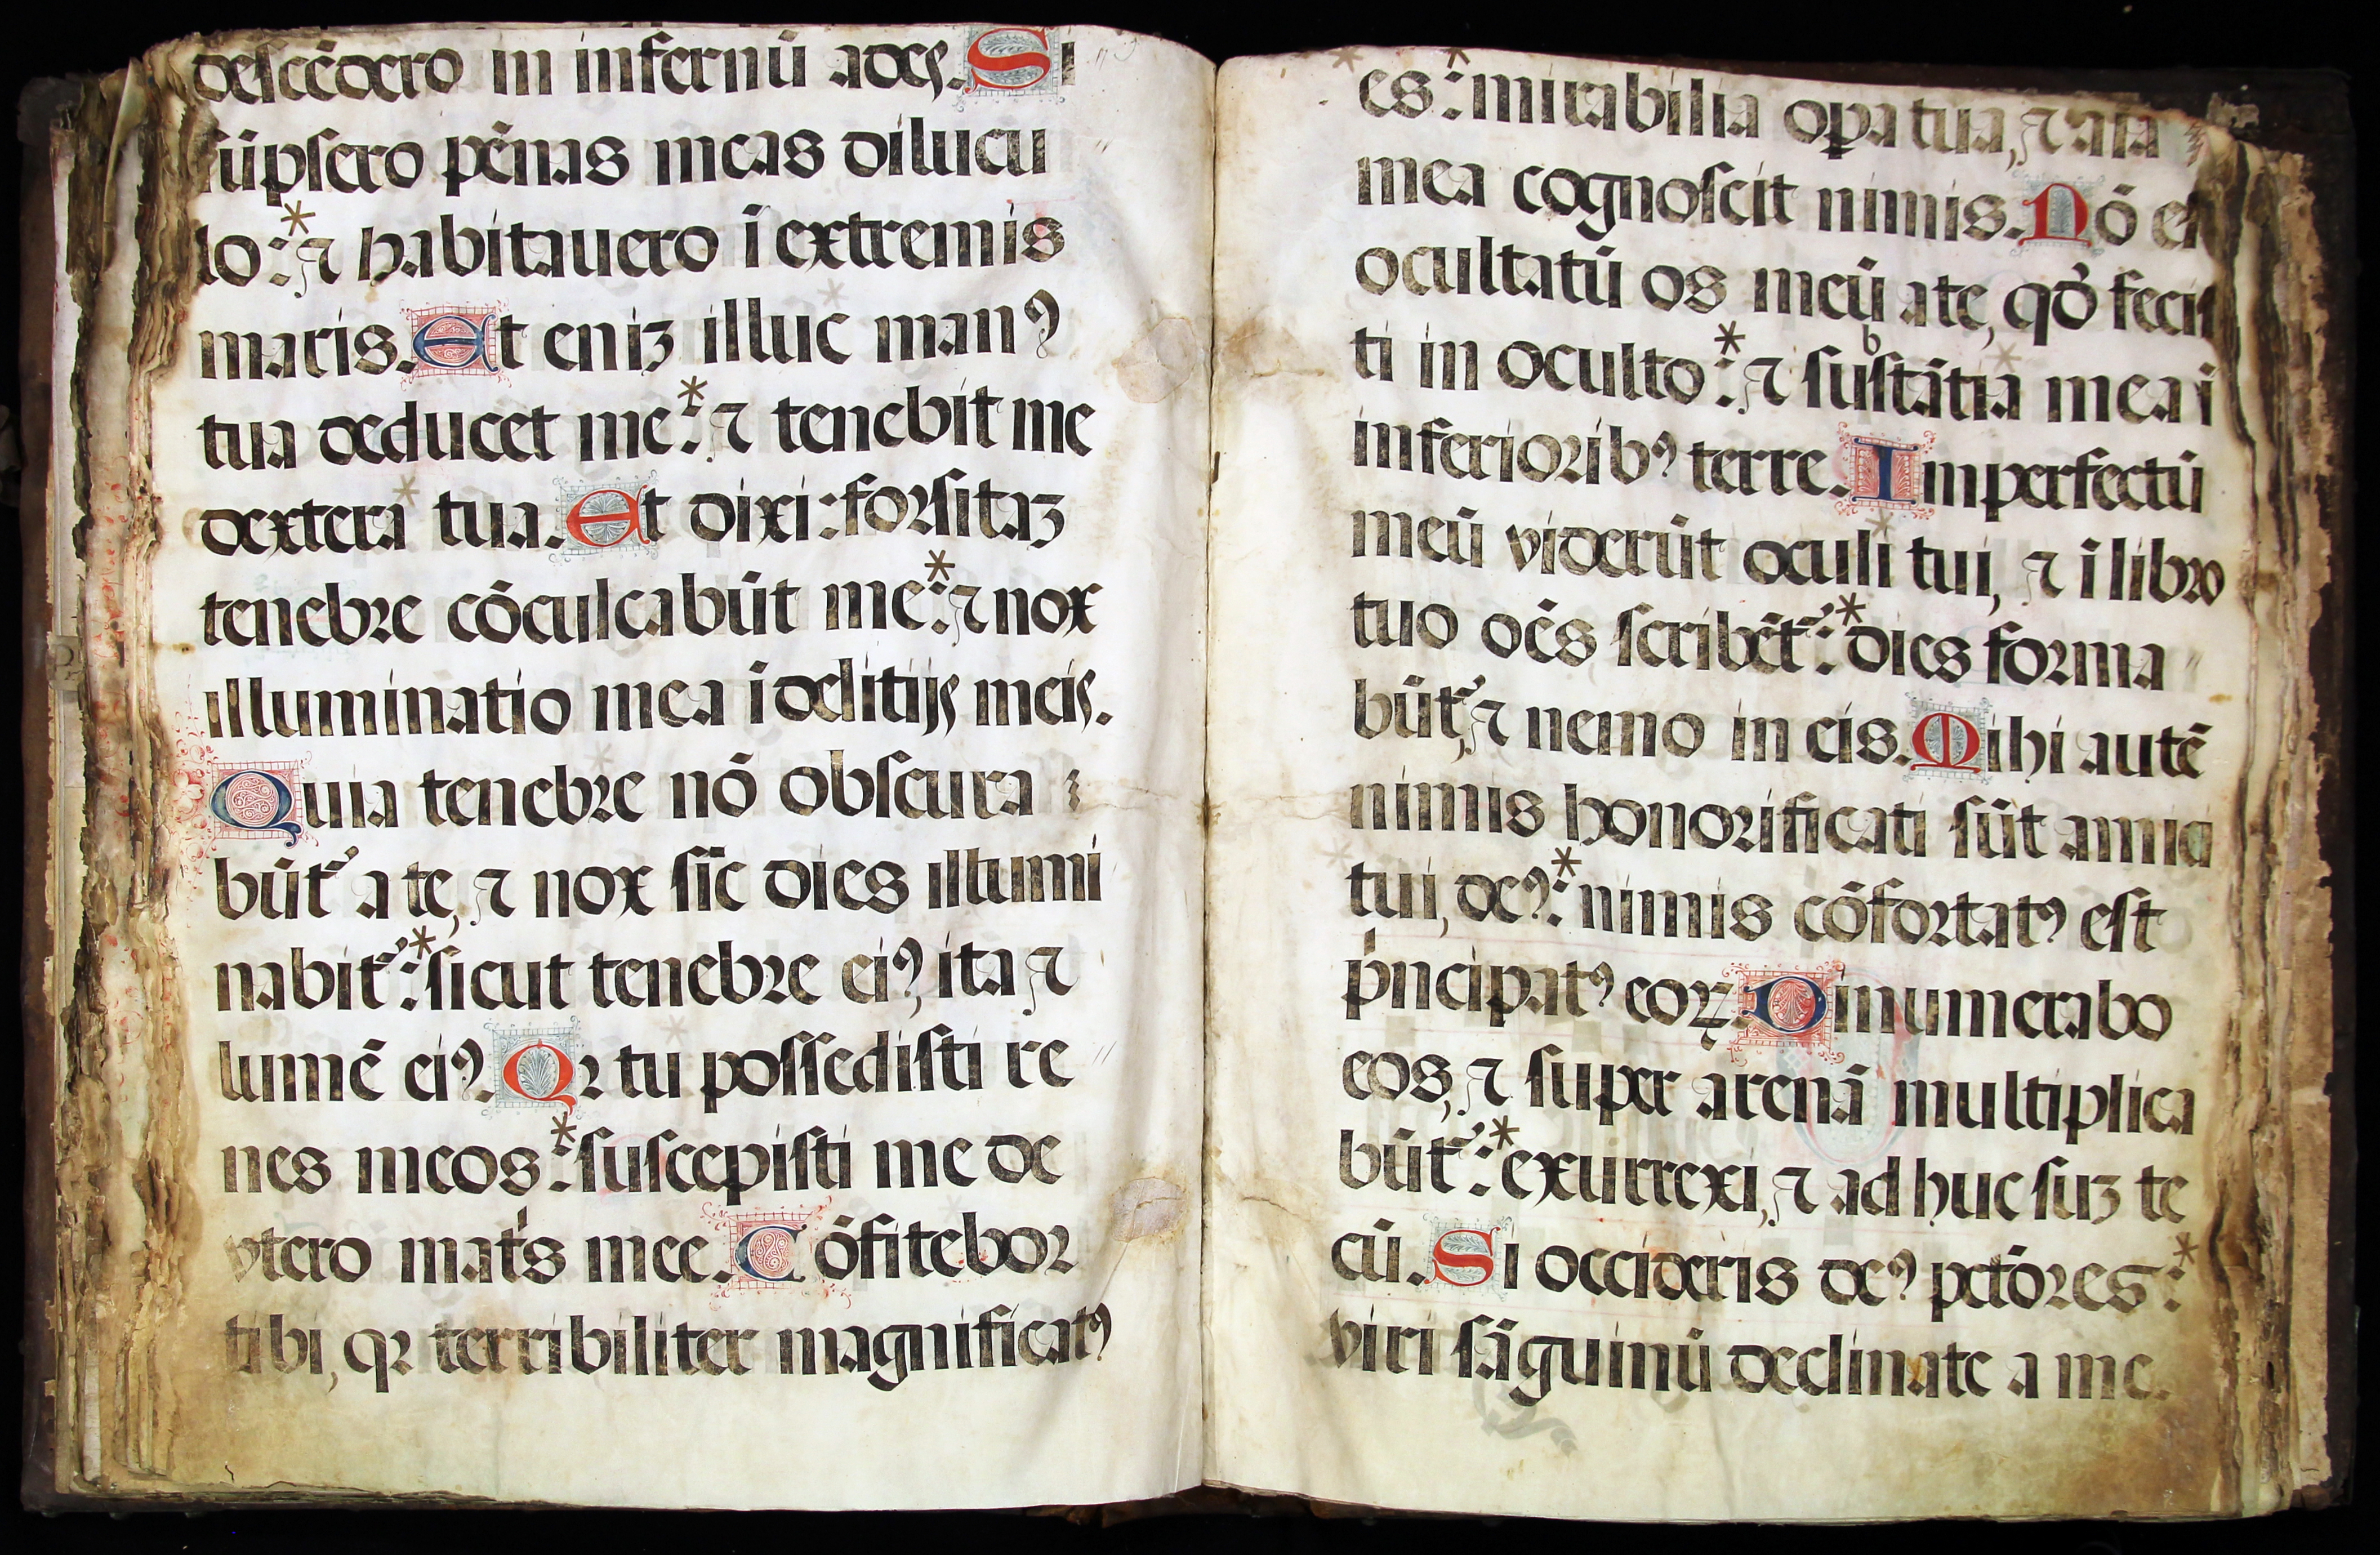 descēdero in infernū ades. Si
sūpsero pēnas meas dilucu
lo:* ⁊ habitauero ī extremis
maris. Et eniꝫ illuc manꝰ
tua deducet me:* ⁊ tenebit me
dextera tua. Et dixi: forsitaꝫ
tenebre cōculcabūt me:* ⁊ nox
illuminatio mea ī delitijs meis.
Quia tenebre nō obscura
būt᷑ a te, ⁊ nox sīc dies illumi
nabit᷑:* sicut tenebre eiꝰ, ita ⁊
lumē eiꝰ. Qꝛ tu possedisti re
nes meos:* suscepisti me de
vtero mat͛s mee. Cōfitebor
tibi, qꝛ terribiliter magnificatꝰ
es:* mirabilia oꝑa tua, ⁊ aīa
mea cognoscit nimis. Nō est
ocultatū os meū a te, qd̓ fecis
ti in oculto:* ⁊ substātia mea ī
inferioribꝰ terre. Imperfectū
meū viderūt oculi tui, ⁊ ī libro
tuo oēs scribēt᷑:* dies forma
būt᷑, ⁊ nemo in eis. Mihi autē
nimis honorificati sūt amici
tui, deꝰ:* nimis cōfortatꝰ est
pͥncipatꝰ eoꝝ. Dinumerabo
eos, ⁊ super arenā multiplica
būt᷑:* exurrexi, ⁊ ad huc suꝫ te
cū. Si occideris deꝰ pctōres:*
viri sāguinū declinate a me.